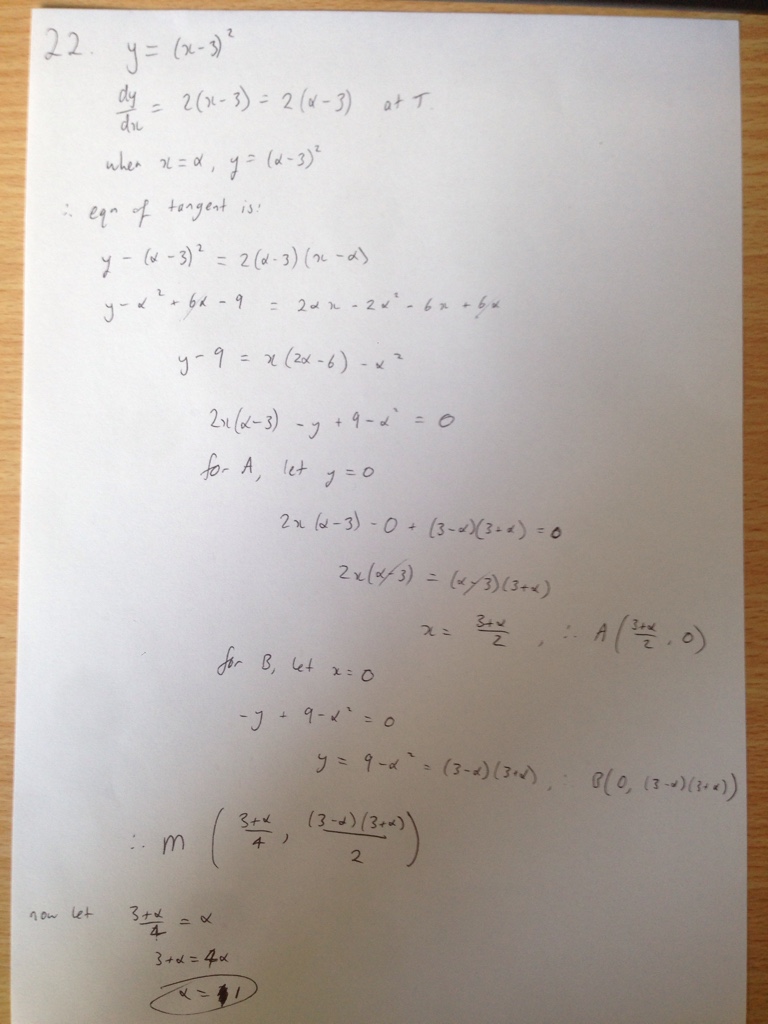 22. y = (x-3)²
dy/dx = 2(x-3) = 2(α-3) at T.
when x=α, y = (α-3)²
∴ eqn of tangent is:
y - (α-3)² = 2(α-3)(x-α)
y - α² + 6α - 9 = 2αx - 2α² - 6x + 6α
y - 9 = x(2α-6) - α²
2x(α-3) - y + 9 - α² = 0
for A, let y = 0
2x(α-3) - 0 + (3-α)(3+α) = 0
2x(α-3) = (α-3)(3+α)
x = 3+α/2, ∴ A(3+α/2, 0)
for B, let x = 0
-y + 9 - α² = 0
y = 9-α² = (3-α)(3+α), ∴ B(0, (3-α)(3+α))
∴ M (3+α/4, (3-α)(3+α)/2)
now let 3+α/4 = α
3+α = 4α
α = 1